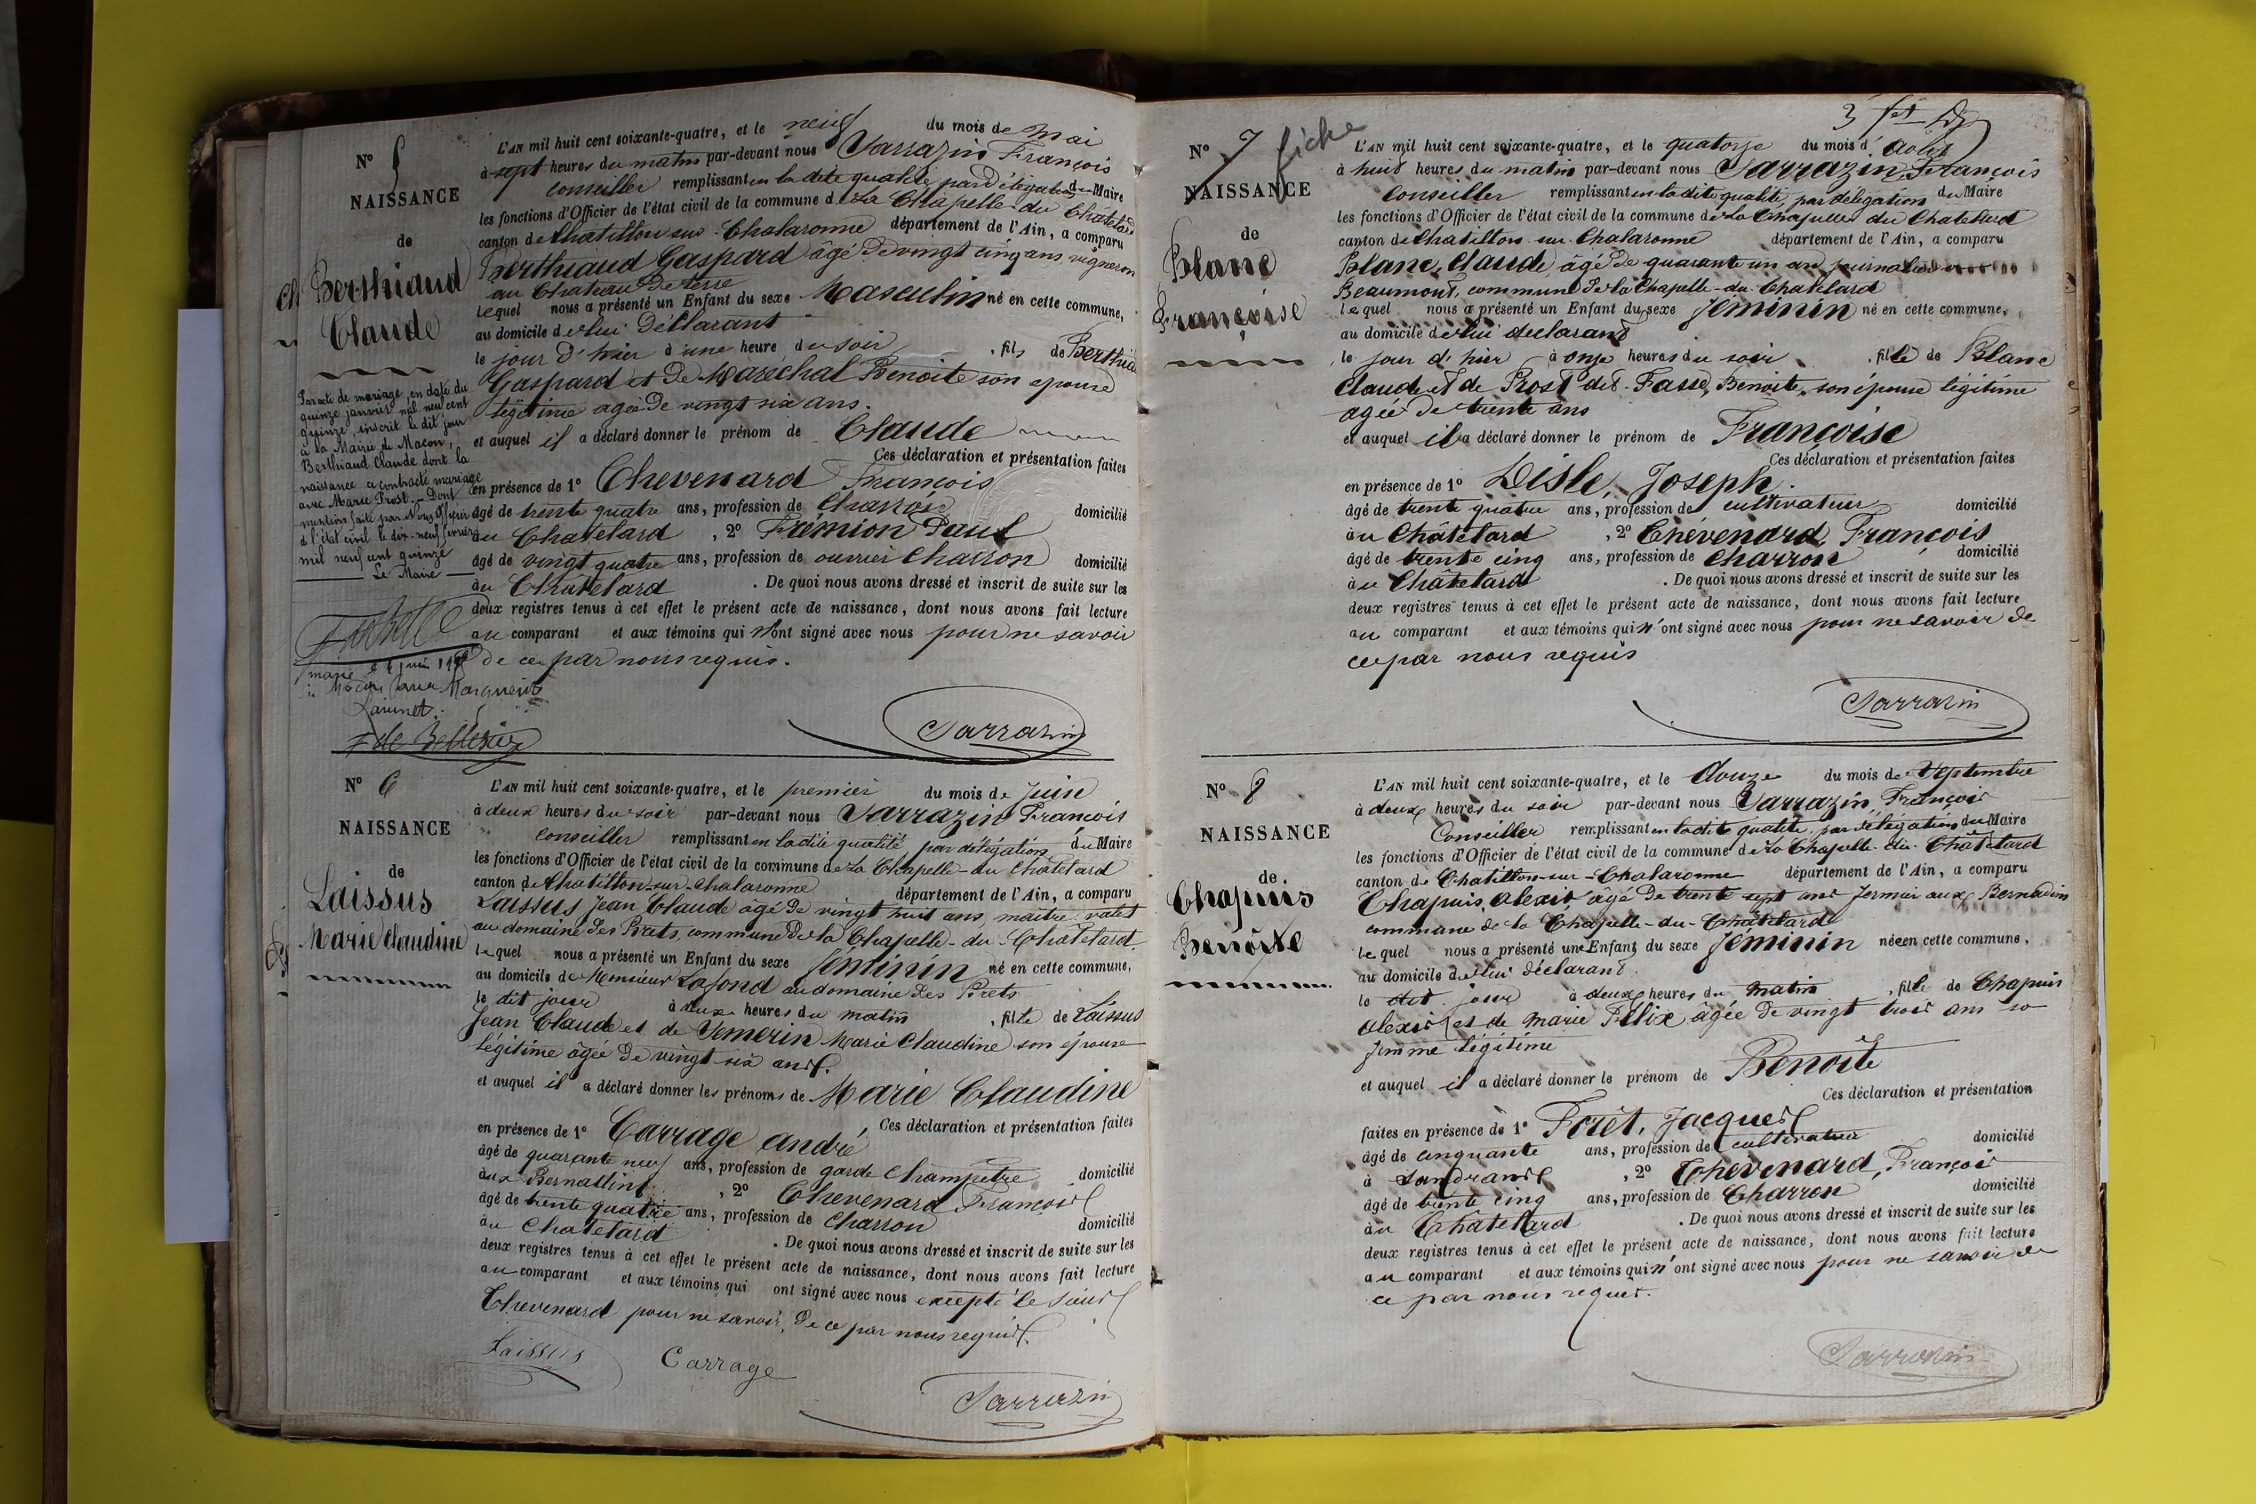 N° 5
NAISSANCE
de
Berthiaud
Claude
Par acte de mariage, en date du
quinze janvier mil neuf cent
quinze, inscrit le dit jour
à la Mairie de Macon,
Berthiaud Claude dont la
naissance a contracté mariage
avec Marie Prost. - Dont
mention faite par Nous Officier
de l'état civil le dix-neuf janvier
mil neuf cent quinze
Le Maire
à Macon
L'AN mil huit cent soixante-quatre, et le neuf du mois de Mai
à sept heures du matin par-devant nous Sarrazin François
conseiller remplissant en la dite qualité, par délégation du Maire
les fonctions d'Officier de l'état civil de la commune de La Chapelle-du Châtelard
canton de Chatillon sur Chalaronne département de l'Ain, a comparu
Berthiaud Gaspard âgé de vingt cinq ans vigneron
au Chateau de terre
lequel nous a présenté un Enfant du sexe Masculin né en cette commune,
au domicile de lui Déclarant
le jour d'hier à une heure du soir, fils de Berthiaud
Gaspard et de Maréchal Benoite son épouse
légitime agée de vingt six ans.
et auquel il a déclaré donner le prénom de Claude
Ces déclaration et présentation faites
en présence de 1° Chevenard François
âgé de trente quatre ans, profession de Charron domicilié
au Chatelard, 2° Frémion Paul
âgé de vingt quatre ans, profession de ouvrier Charron domicilié
au Châtelard. De quoi nous avons dressé et inscrit de suite sur les
deux registres tenus à cet effet le présent acte de naissance, dont nous avons fait lecture
au comparant et aux témoins qui n'ont signé avec nous pour ne savoir
de ce par nous requis.
Sarrazin
N° 6
NAISSANCE
de
Laissus
Marie Claudine
L'AN mil huit cent soixante-quatre, et le premier du mois de Juin
à deux heures du soir par-devant nous Sarrazin François
conseiller remplissant en la dite qualité, par délégation du Maire
les fonctions d'Officier de l'état civil de la commune de La Chapelle-du Châtelard
canton de Chatillon-sur-Chalaronne département de l'Ain, a comparu
Laissus Jean Claude âgé de vingt huit ans, maître valet
au domaine des Brets, commune de la Chapelle-du-Châtelard
lequel nous a présenté un Enfant du sexe féminin né en cette commune,
au domicile de Monsieur Lafond au domaine des Brets
le dit jour à deux heures du matin, fille de Laissus
Jean Claude et de Semerin Marie Claudine son épouse
légitime âgée de vingt six ans.
et auquel il a déclaré donner les prénoms de Marie Claudine
Ces déclaration et présentation faites
en présence de 1° Carrage André
âgé de quarante neuf ans, profession de garde Champêtre domicilié
aux Bernardins, 2° Chevenard François
âgé de trente quatre ans, profession de Charron domicilié
au Chatelard. De quoi nous avons dressé et inscrit de suite sur les
deux registres tenus à cet effet le présent acte de naissance, dont nous avons fait lecture
au comparant et aux témoins qui ont signé avec nous excepté le sieur
Chevenard pour ne savoir, de ce par nous requis.
Laissus Carrage
Sarrazin
N° 7 fiche
NAISSANCE
de
Blanc
Françoise
L'AN mil huit cent soixante-quatre, et le quatorze du mois d'Août
à huit heures du matin par-devant nous Sarrazin, François
Conseiller remplissant en la dite qualité, par délégation du Maire
les fonctions d'Officier de l'état civil de la commune de La Chapelle du Chatelard
canton de Chatillon sur Chalaronne département de l'Ain, a comparu
Blanc, Claude, âgé de quarante un ans, journalier
Beaumont, commune de la Chapelle-du-Chatelard
lequel nous a présenté un Enfant du sexe féminin né en cette commune,
au domicile de lui déclarant
le jour d'hier à onze heures du soir, fille de Blanc
Claude et de Prost dit Fasse, Benoite, son épouse légitime
agée de trente ans
et auquel il a déclaré donner le prénom de Françoise
Ces déclaration et présentation faites
en présence de 1° Disle, Joseph.
âgé de trente quatre ans, profession de cultivateur domicilié
au Châtelard, 2° Chevenard, François
âgé de trente cinq ans, profession de charron domicilié
au Châtelard. De quoi nous avons dressé et inscrit de suite sur les
deux registres tenus à cet effet le présent acte de naissance, dont nous avons fait lecture
au comparant et aux témoins qui n'ont signé avec nous pour ne savoir de
ce par nous requis
Sarrazin
N° 8
NAISSANCE
de
Chapuis
Benoîte
L'AN mil huit cent soixante-quatre, et le douze du mois de Septembre
à deux heures du soir par-devant nous Sarrazin, François
Conseiller remplissant en la dite qualité, par délégation du Maire
les fonctions d'Officier de l'état civil de la commune de La Chapelle-du-Châtelard
canton de Chatillon-sur-Chalaronne département de l'Ain, a comparu
Chapuis, Alexis, âgé de trente sept ans fermier aux Bernardins
commune de la Chapelle-du-Châtelard
lequel nous a présenté une Enfant du sexe féminin née en cette commune,
au domicile de lui déclarant.
le dit jour à deux heures du matin, fille de Chapuis
Alexis et de Marie Félix âgée de vingt trois ans sa
femme légitime
et auquel il a déclaré donner le prénom de Benoîte
Ces déclaration et présentation
faites en présence de 1° Forêt, Jacques
âgé de cinquante ans, profession de cultivateur domicilié
à Sandrans, 2° Chevenard, François
âgé de trente cinq ans, profession de Charron domicilié
au Châtelard. De quoi nous avons dressé et inscrit de suite sur les
deux registres tenus à cet effet le présent acte de naissance, dont nous avons fait lecture
au comparant et aux témoins qui n'ont signé avec nous pour ne savoir de
ce par nous requis.
Sarrazin